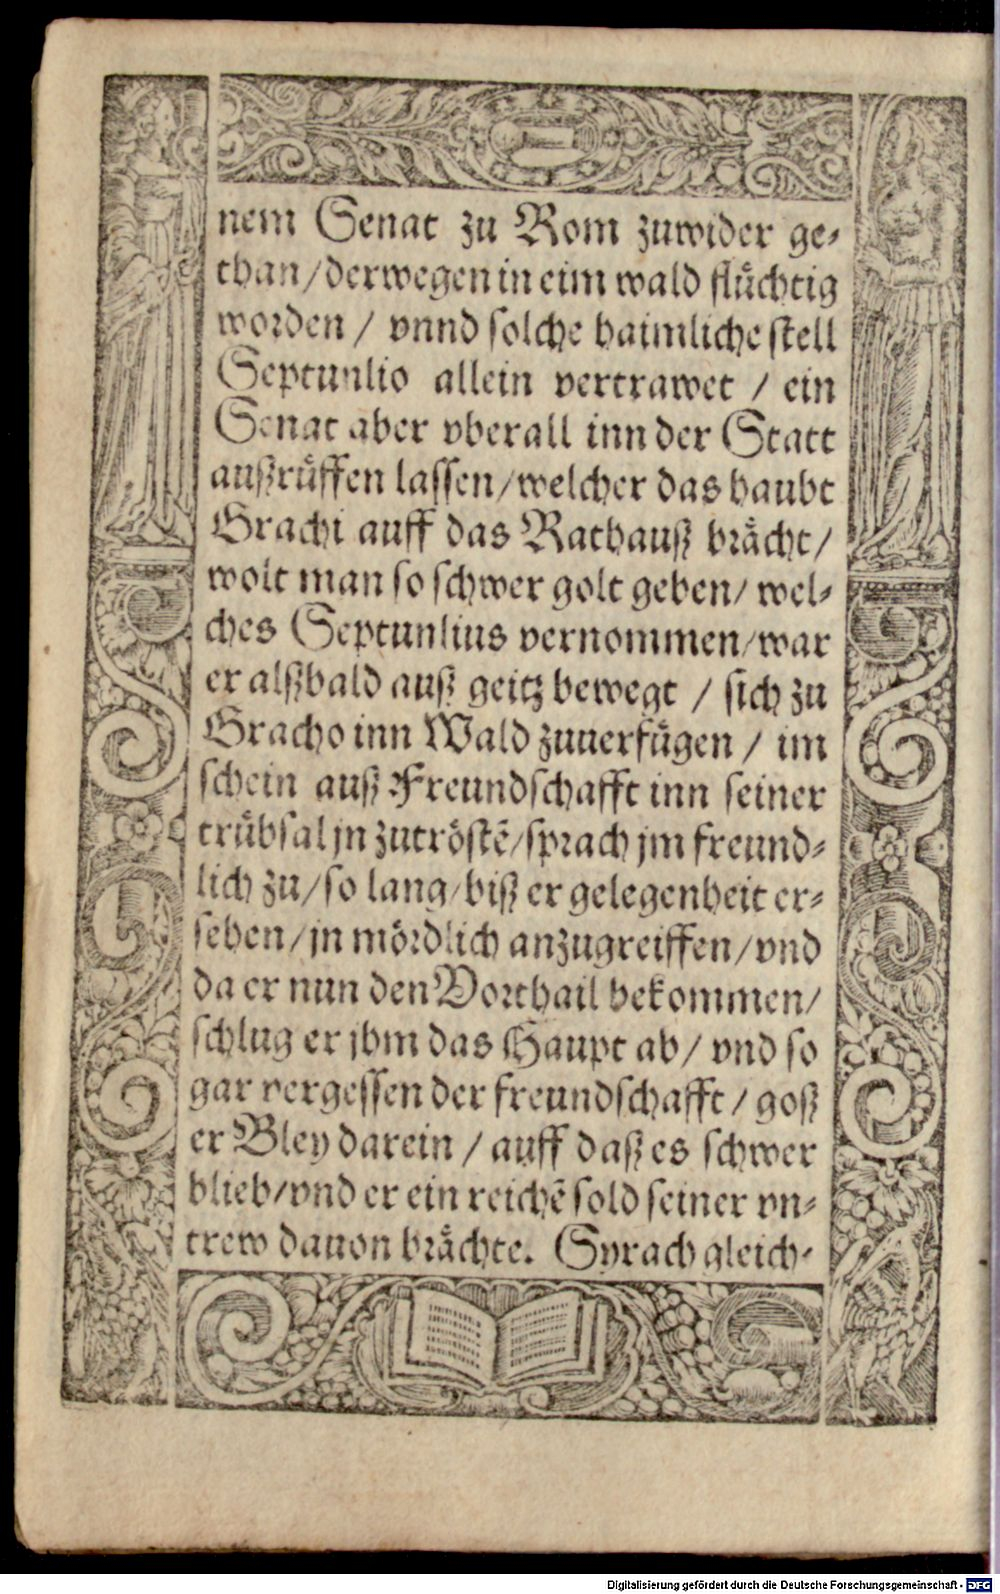 nem Senat zu Rom zuwider ge⸗
than/derwegen in eim wald flüchtig
worden / vnnd solche haimliche stell
Septunlio allein vertrawet / ein
Senat aber vberall inn der Statt
außrüffen lassen/welcher das haubt
Grachi auff das Rathauß brächt/
wolt man so schwer golt geben/ wel⸗
ches Septunlius vernommen/war
er alßbald auß geitz bewegt / sich zu
Gracho inn Wald zuuerfügen / im
schein auß Freundschafft inn seiner
trübsal jn zutröstē/sprach jm freund⸗
lich zu/so lang/biß er gelegenheit er⸗
sehen/jn mördlich anzugreiffen/vnd
da er nun den Vorthail bekommen/
schlug er jhm das Haupt ab/ vnd so
gar vergessen der freundschafft / goß
er Bley darein / auff daß es schwer
blieb/vnd er ein reichē sold seiner vn⸗
trew dauon brächte. Syrach gleich⸗
Digitalisierung gefördert durch die Deutsche Forschungsgemeinschaft - DFG